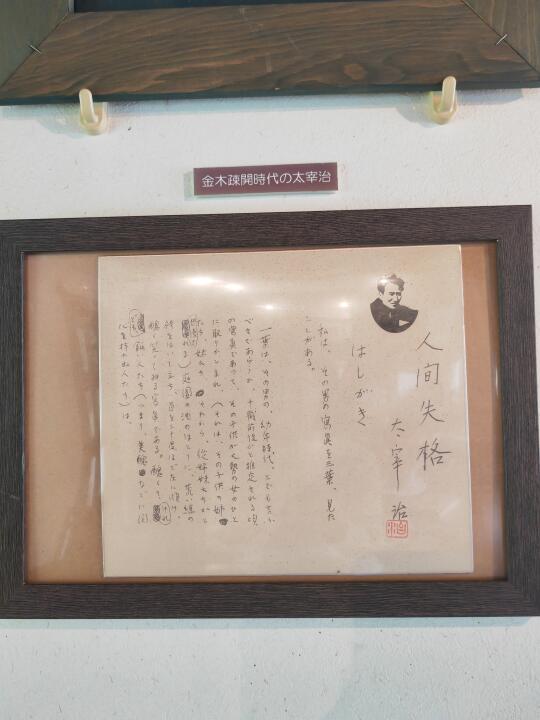 金木疎開時代の太宰治
人間失格
太宰治
はしがき
私は、その男の寫眞を三葉、見た
ことがある。
一葉は、その男の、幼年時代、とでも言ふ
べきであらうか、十歳前後かと推定される頃
の寫眞であつて、その子供が大勢の女のひと
に取りかこまれ、(それは、その子供の姉
たち、妹たち、それから、從姉妹たちかと
想像される)庭園の池のほとりに、荒い縞の
袴をはいて立ち、首を三十度ほど左に傾け、
醜く笑つてゐる寫眞である。醜く?けれ
ども、鈍い人たち(つまり、美醜などに關
心を持たぬ人たち)は、